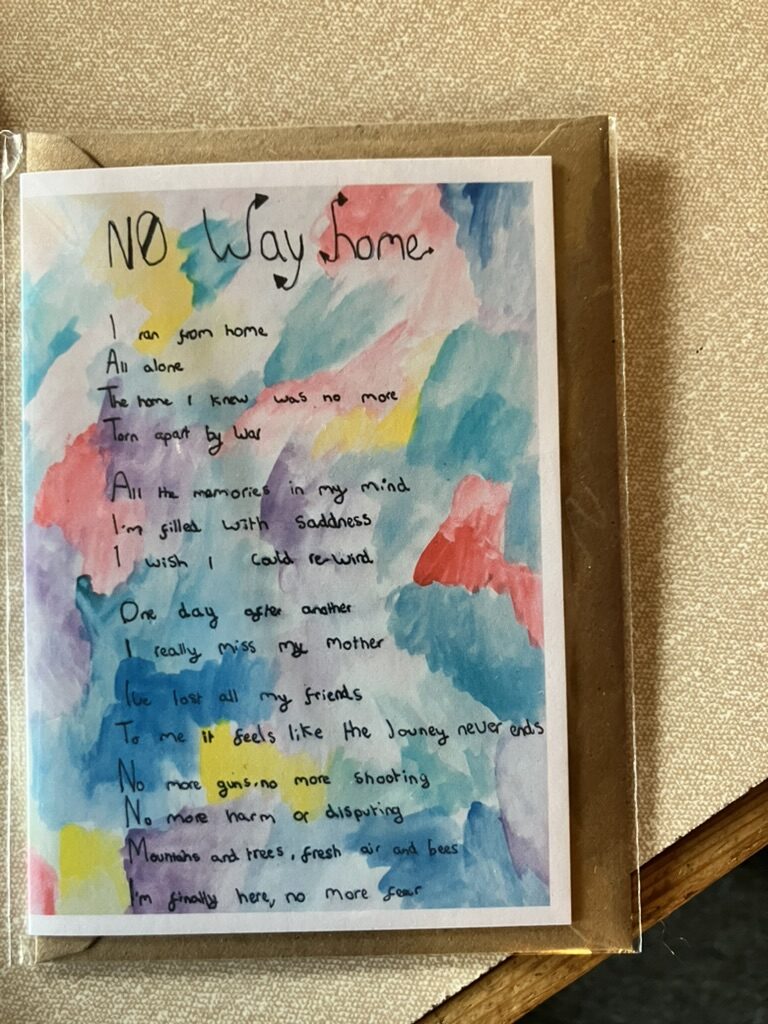 NO Way home
I ran from home
All alone
The home I knew was no more
Torn apart by War
All the memories in my mind
I'm filled with saddness
I wish I could re-wind
One day after another
I really miss my mother
I've lost all my friends
To me it feels like the Jouney never ends
No more guns, no more shooting
No more harm or disputing
Mountains and trees, fresh air and bees
I'm finally here, no more fear